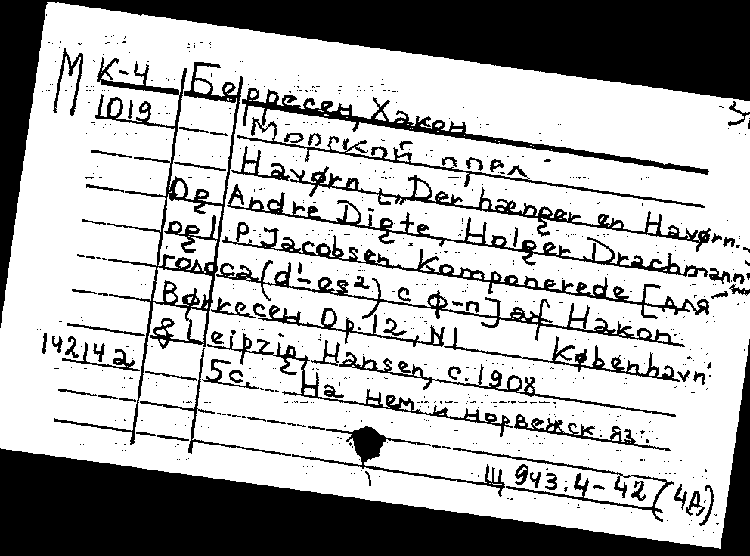 М К-4 Берресен, Хакон
1019 Морской орел
Havørn „Der hænger en Havørn..."
og Andre Digte, Holger Drachmann
og I. P. Jacobsen. Komponerede [для
голоса (d¹-es²) с ф-п] af Hakon
Børresen Op. 12, N1 København
& Leipzig, Hansen, c. 1908
142142 5с. На нем. и норвежск. яз.
Щ 943.4-42 (4Д)